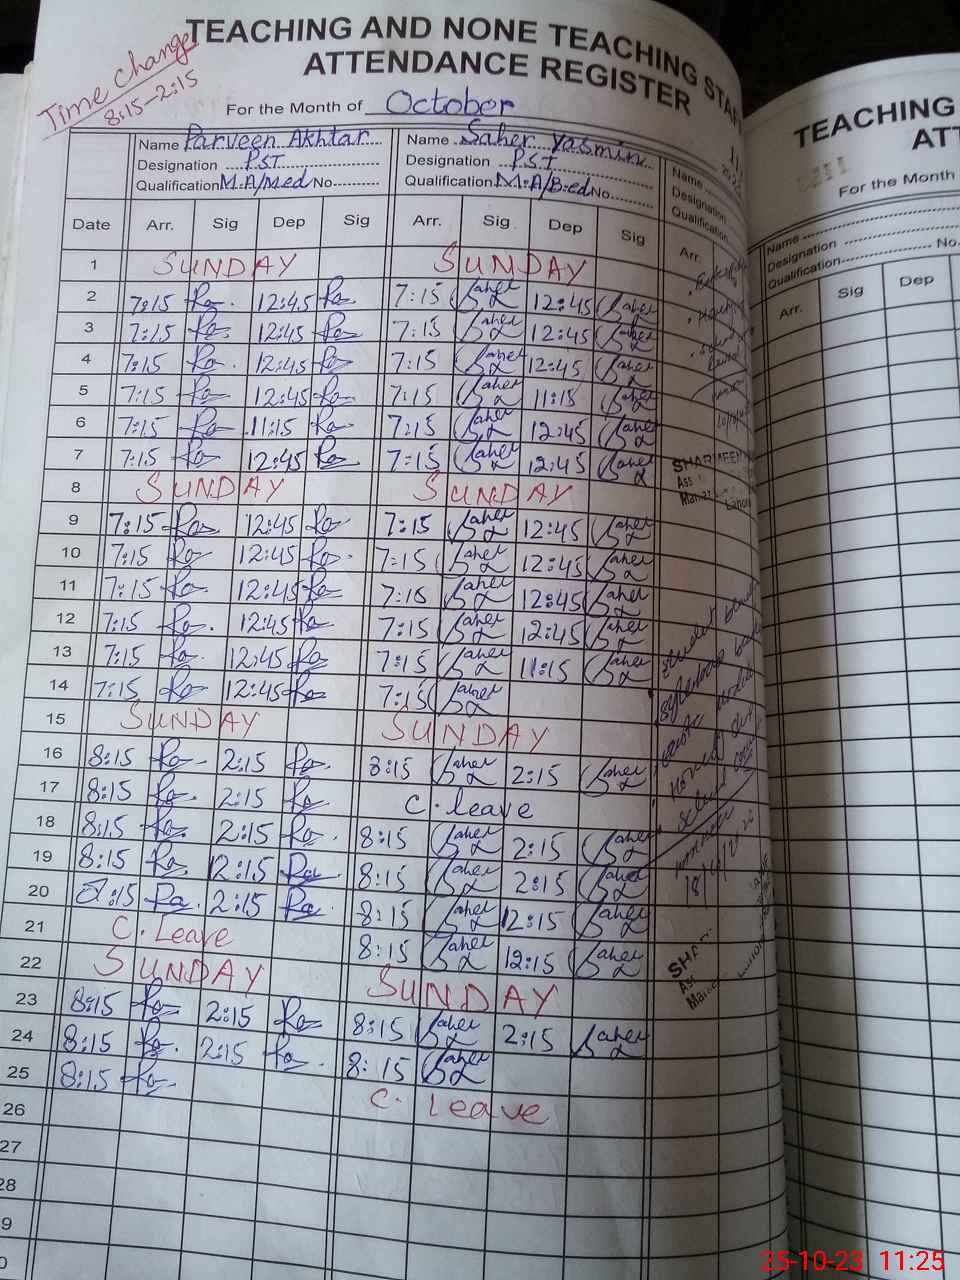 Time change
8:15-2:15
TEACHING AND NONE TEACHING STAFF
ATTENDANCE REGISTER
For the Month of October
Name Parveen Akhtar Name Saher Yasmin Name
Designation PST Designation PST Designation
Qualification M.A/Med No Qualification M.A/B.ed No Qualification
Date Arr. Sig Dep Sig Arr. Sig Dep Sig Arr.
1 SUNDAY SUNDAY
2 7:15 12:45 7:15 Saher 12:45 Saher
3 7:15 12:45 7:15 Saher 12:45 Saher
4 7:15 12:45 7:15 Saher 12:45 Saher
5 7:15 12:45 7:15 Saher 11:15 Saher
6 7:15 11:15 7:15 Saher 12:45 Saher
7 7:15 12:45 7:15 Saher 12:45 Saher
8 SUNDAY SUNDAY
9 7:15 12:45 7:15 Saher 12:45 Saher
10 7:15 12:45 7:15 Saher 12:45 Saher
11 7:15 12:45 7:15 Saher 12:45 Saher
12 7:15 12:45 7:15 Saher 12:45 Saher
13 7:15 12:45 7:15 Saher 11:15 Saher
14 7:15 12:45 7:15 Saher
15 SUNDAY SUNDAY
16 8:15 2:15 8:15 Saher 2:15 Saher
17 8:15 2:15 C. leave
18 8:15 2:15 8:15 Saher 2:15 Saher
19 8:15 12:15 8:15 Saher 2:15 Saher
20 8:15 2:15 8:15 Saher 12:15 Saher
21 C. Leave 8:15 Saher 12:15 Saher
22 SUNDAY SUNDAY
23 8:15 2:15 8:15 Saher 2:15 Saher
24 8:15 2:15 8:15 Saher
25 8:15 C. leave
26
27
28
9
0
SHARMEEN
Lahore
TEACHING
ATT
For the Month
Name
Designation
Qualification No.
Arr. Sig Dep
25-10-23 11:25